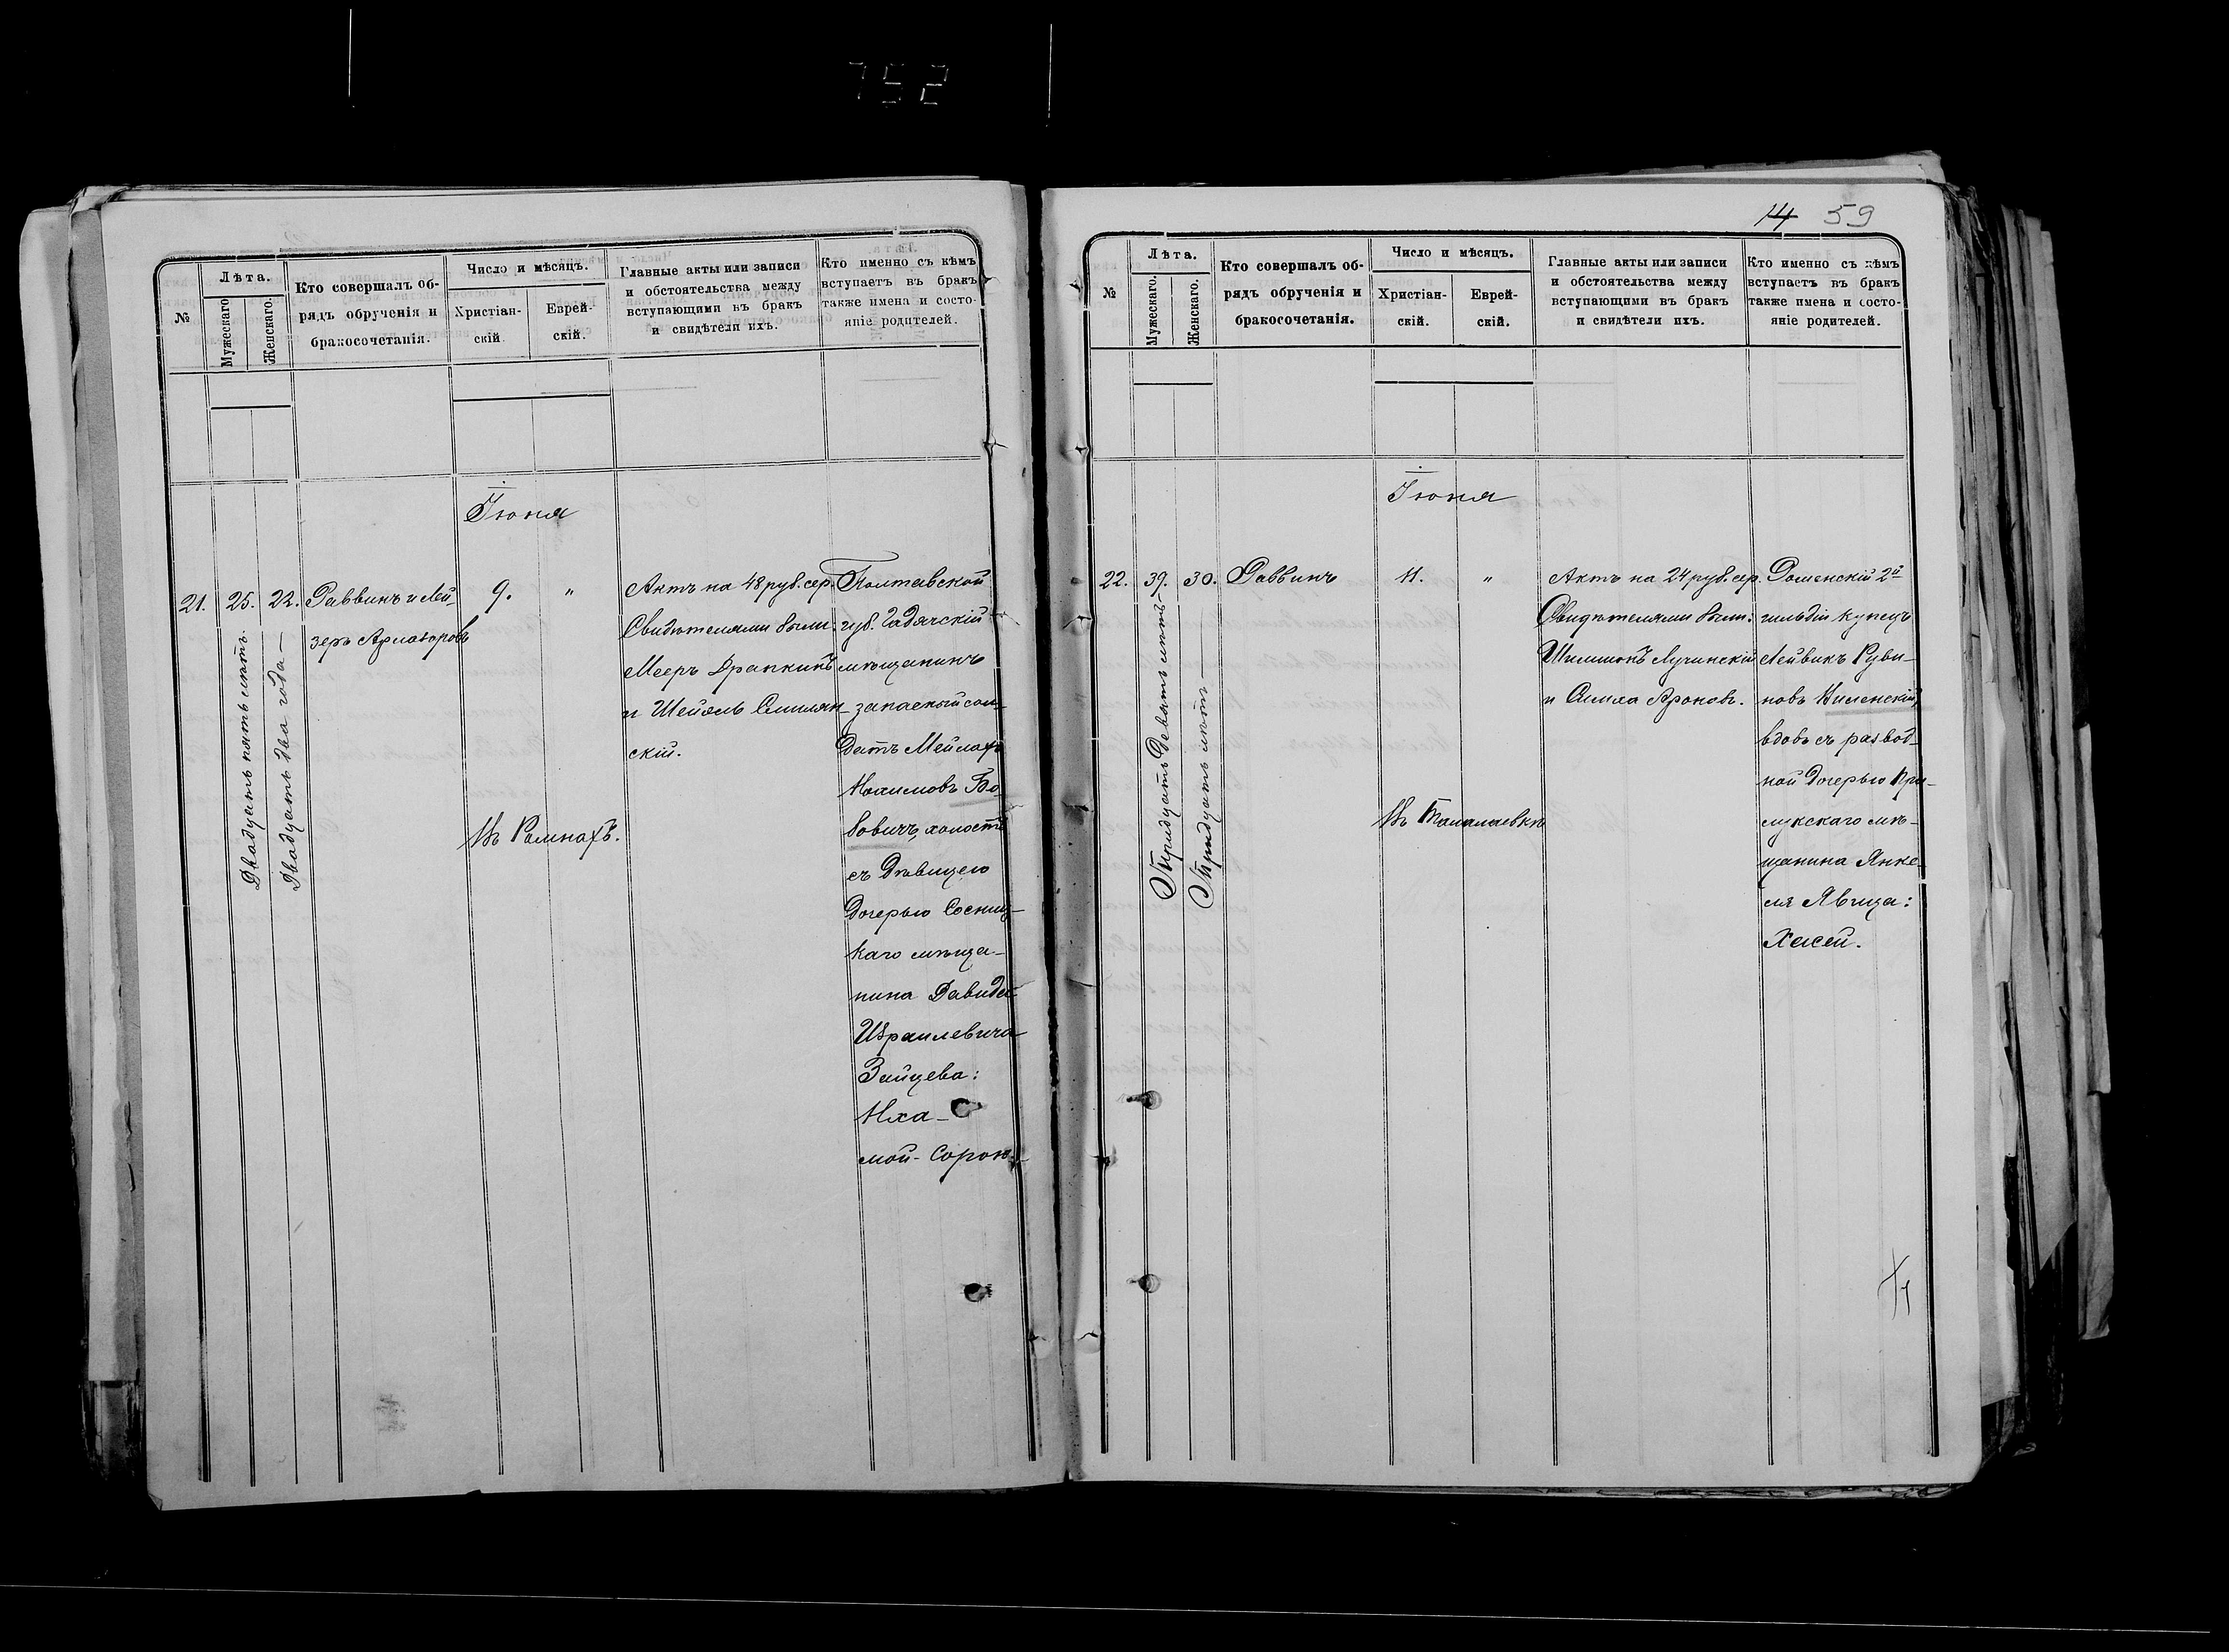 752
№
Лѣта.
Мужескаго
Женскаго.
Кто совершалъ об-
рядъ обрученія и
бракосочетанія.
Число и мѣсяцъ.
Христіан-
скій.
Еврей-
скій.
Главные акты или записи
и обстоятельства между
вступающими въ бракъ
и свидѣтели ихъ.
Кто именно съ кѣмъ
вступаетъ въ бракъ
также имена и состо-
яніе родителей.
Іюня
21.
25.
Двадцать пять лѣтъ.
22.
Двадцать два года —
Раввинъ и Лей-
зеръ
9.
"
Въ Ромнахъ.
Актъ на 48 руб. сер.
Свидѣтелями были:
Мееръ Драпкинъ
и Шейэль Смилян-
скій.
Полтавской
губ. Гадячскій
мѣщанинъ
запасный сол-
датъ Мейлахъ
Нохимовъ Бо-
бовичъ, холостъ
съ дѣвицею
дочерью Сосниц-
каго мѣща-
нина Давида
Израилевича
Зайцева:
Нха-
мой-Сорою.
14 59
№
Лѣта.
Мужескаго.
Женскаго.
Кто совершалъ об-
рядъ обрученія и
бракосочетанія.
Число и мѣсяцъ.
Христіан-
скій.
Еврей-
скій.
Главные акты или записи
и обстоятельства между
вступающими въ бракъ
и свидѣтели ихъ.
Кто именно съ кѣмъ
вступаетъ въ бракъ
также имена и состо-
яніе родителей.
Іюня
22.
39.
Тридцать девять лѣтъ —
30.
Тридцать лѣтъ —
Раввинъ
11.
"
Въ Талалаевкѣ
Актъ на 24 руб. сер.
Свидѣтелями были:
Шиммонъ Лучинскій
и Ароновъ.
Роменскій 2й
гильдіи купецъ
Лейвикъ Руви-
новъ
вдовъ съ развод-
ной дочерью При-
лукскаго мѣ-
щанина Янке-
ля Явица:
Хасей.